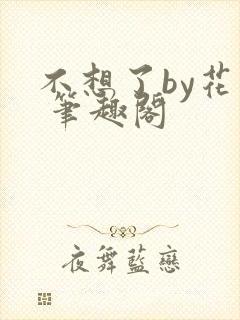 不想了by花
筆趣閣
夜舞藍戀